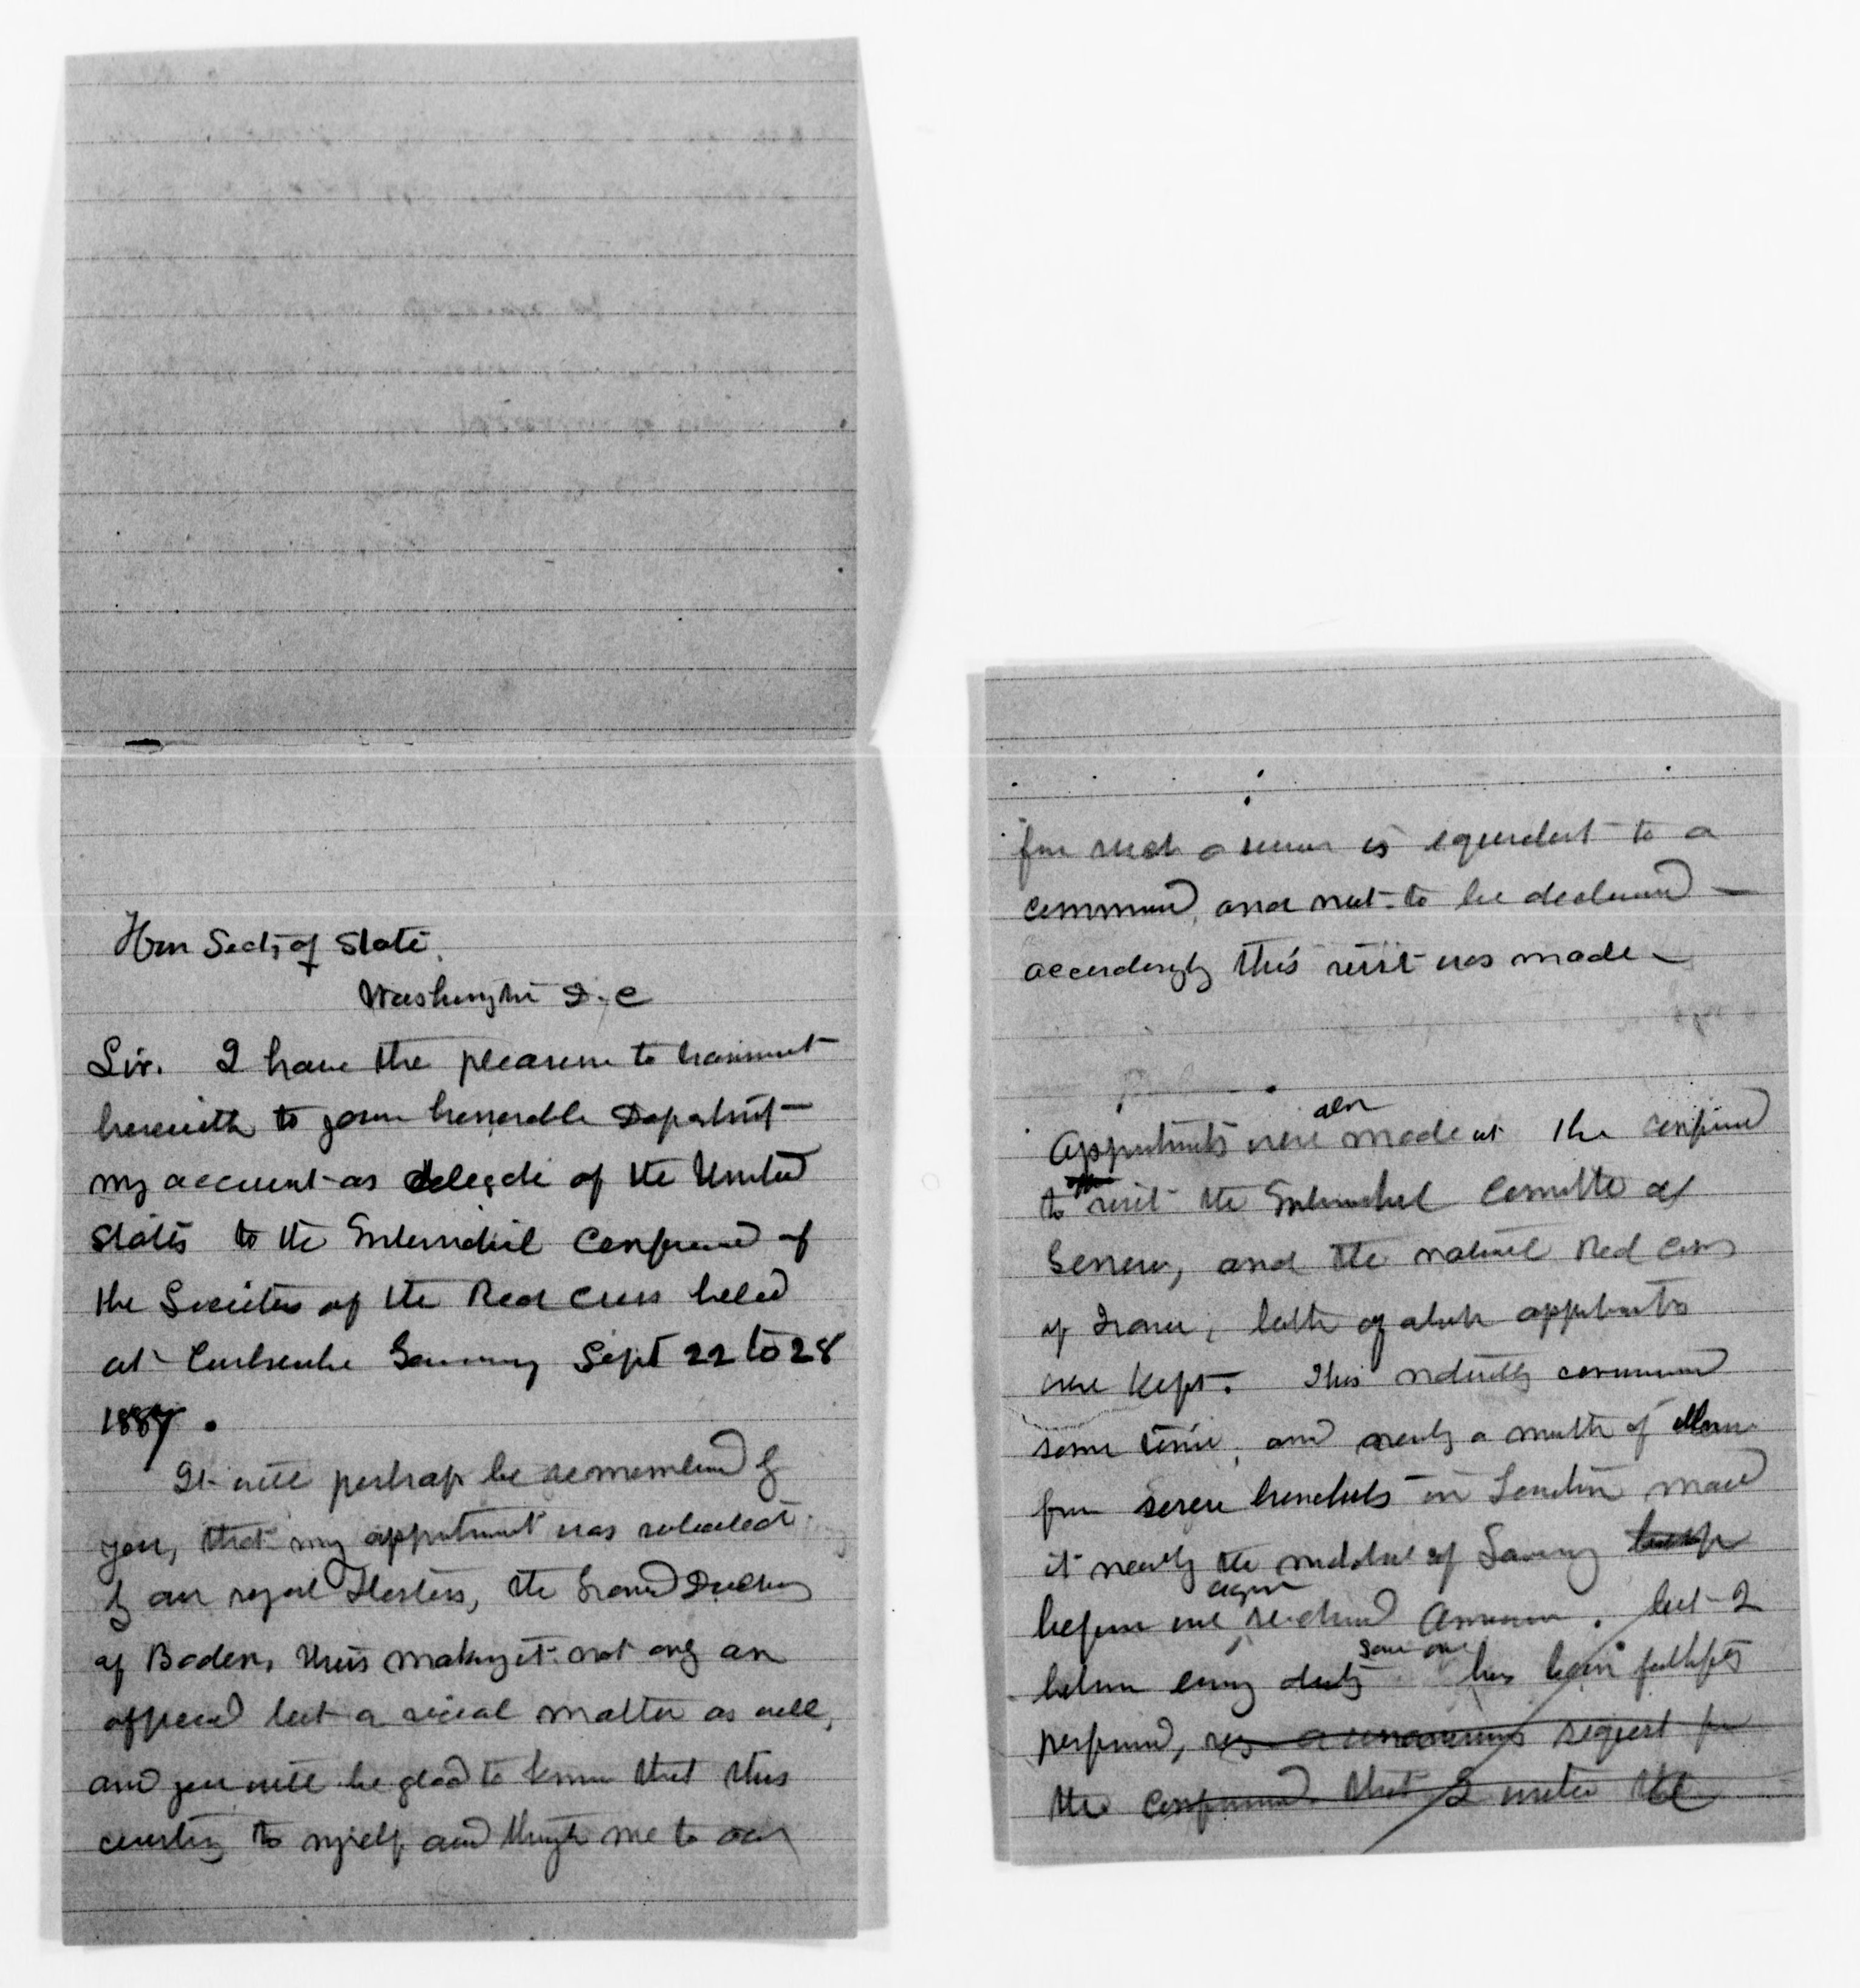 Hon Secty of State.
Washington D.C
Sir. I have the pleasure to transmit
herewith to your honorable Department
my account as delegate of the United
States to the International Conference of
the Societies of the Red Cross held
at Carlsruhe Germany Sept 22 to 28
1887.
It will perhaps be remembered by
you, that my appointment was solicited
by our royal Hostess, the Grand Duchess
of Baden, thus making it not only an
official but a social matter as well,
and you will be glad to know that this
courtesy to myself and through me to our
for such a is equivalent to a
command, and not to be declined —
accordingly this visit was made —
also
Appointments were made at the conference
to visit the International Committee of
Geneva, and the national Red Cross
of France, both of which appointments
were kept. This naturally consumed
some time, and nearly a month of illness
from severe bronchitis in London made
it nearly the middle of January
again
before we reached America. but I
some one
believe every duty has been faithfully
performed, a unanimous request from
the Conference that I write the